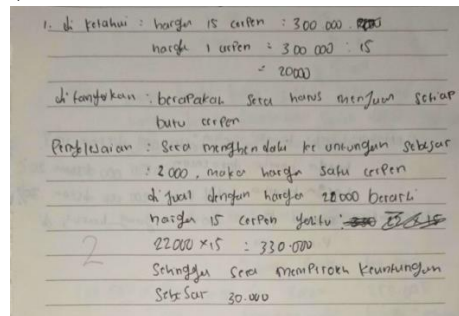 1. di ketahui : harga 15 cerpen : 300 000.
harga 1 cerpen = 300 000 : 15
= 20000
di tanyakan : berapakah Sera harus menjual setiap
buku cerpen
Penyelesaian : Sera menghendaki ke untungan sebesar
: 2 000, maka harga satu cerpen
di jual dengan harga 22000 berarti
harga 15 cerpen yaitu :
22000 × 15 : 330.000
2
Sehingga Sera memperoleh keuntungan
Sebesar 30.000